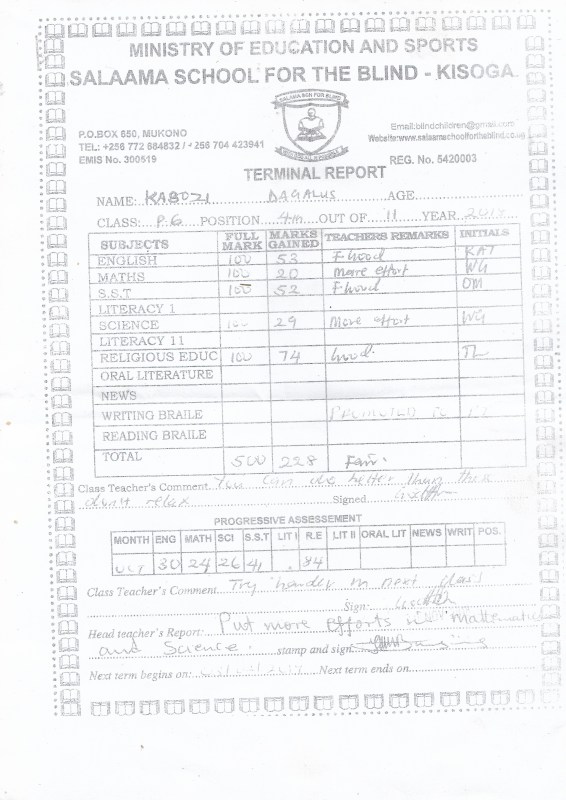 MINISTRY OF EDUCATION AND SPORTS
SALAAMA SCHOOL FOR THE BLIND - KISOGA.
SALAAMA SCH FOR BLIND
P.O.BOX 650, MUKONO
TEL: +256 772 684832 / +256 704 423941
EMIS No. 300519
Email:blindchildren@gmail.com
Website:www.salaamaschoolfortheblind.co.ug
REG. No. 5420003
TERMINAL REPORT
NAME: KABOZI DAGALUS AGE
CLASS: P.6 POSITION 4th OUT OF 11 YEAR
SUBJECTS FULL MARK MARKS GAINED TEACHERS REMARKS INITIALS
ENGLISH 100 53 F.Good KAT
MATHS 100 20 More effort WG
S.S.T 100 52 F.Good OM
LITERACY 1
SCIENCE 100 29 More effort WG
LITERACY 11
RELIGIOUS EDUC 100 74 Good. TL
ORAL LITERATURE
NEWS
WRITING BRAILE
READING BRAILE
TOTAL 500 228 Fair.
Class Teacher's Comment You can do better than this
don't relax Signed
PROGRESSIVE ASSESSEMENT
MONTH ENG MATH SCI S.S.T LIT I R.E LIT II ORAL LIT NEWS WRIT POS.
OCT 30 24 26 41 84
Class Teacher's Comment Try harder in next class
Sign:
Head teacher's Report: Put more efforts in Mathematics
and Science. stamp and sign
Next term begins on: Next term ends on